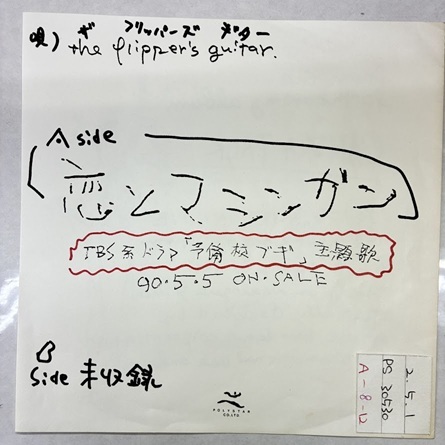 ザ フリッパーズ ギター
唄) the flipper's guitar.
A side
恋とマシンガン
TBS系ドラマ「予備校ブギ」主題歌
90.5.5 ON.SALE
B
side 未収録
POLYSTAR
CO.,LTD
2.5.1
PS 30530
A-8-12